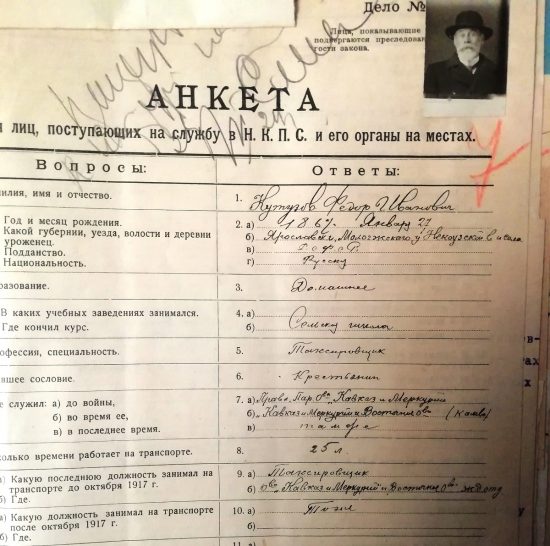 Дело №
Лица, показывающие
подвергаются преследован
гости закона.
АНКЕТА
лиц, поступающих на службу в Н. К. П. С. и его органы на местах.
Вопросы:
Ответы:
илия, имя и отчество.
1. Кутузов Федор Иванович
Год и месяц рождения.
2. а) 1867. Январ 21
Какой губернии, уезда, волости и деревни
уроженец.
б) Ярославск. Мологжскаго у Некоузской в и села
Подданство.
в) Р.С.Ф.С.Р.
Национальность.
г) Русск
разование.
3. Домашнее
В каких учебных заведениях занимался.
4. а)
Где кончил курс.
б) Сельск школа
офессия, специальность.
5. Таксировщик
вшее сословие.
6. Крестьянин
е служил: а) до войны,
7. а) Правл. Пар. Кавказ и Меркурий
б) во время ее,
б) Кавказ и Меркурий и Восточн
в) в последнее время.
в) там же
олько времени работает на транспорте.
8. 25 л.
а) Какую последнюю должность занимал на
транспорте до октября 1917 г.
9. а) Таксировщик
б) Где.
б) Кавказ и Меркурий и Восточн жд отд
а) Какую должность занимал на транспорте
после октября 1917 г.
10. а) Тоже
б) Где.
б)